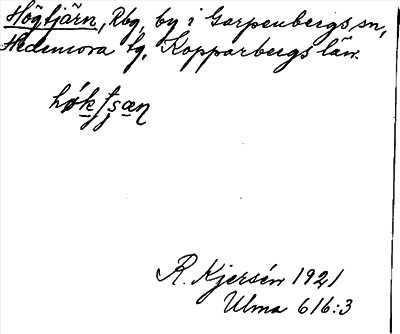 Högtjärn, Rbg, by i Garpenbergs sn,
Hedemora tg, Kopparbergs län.
R. Kjersén 1921
Ulma 616:3